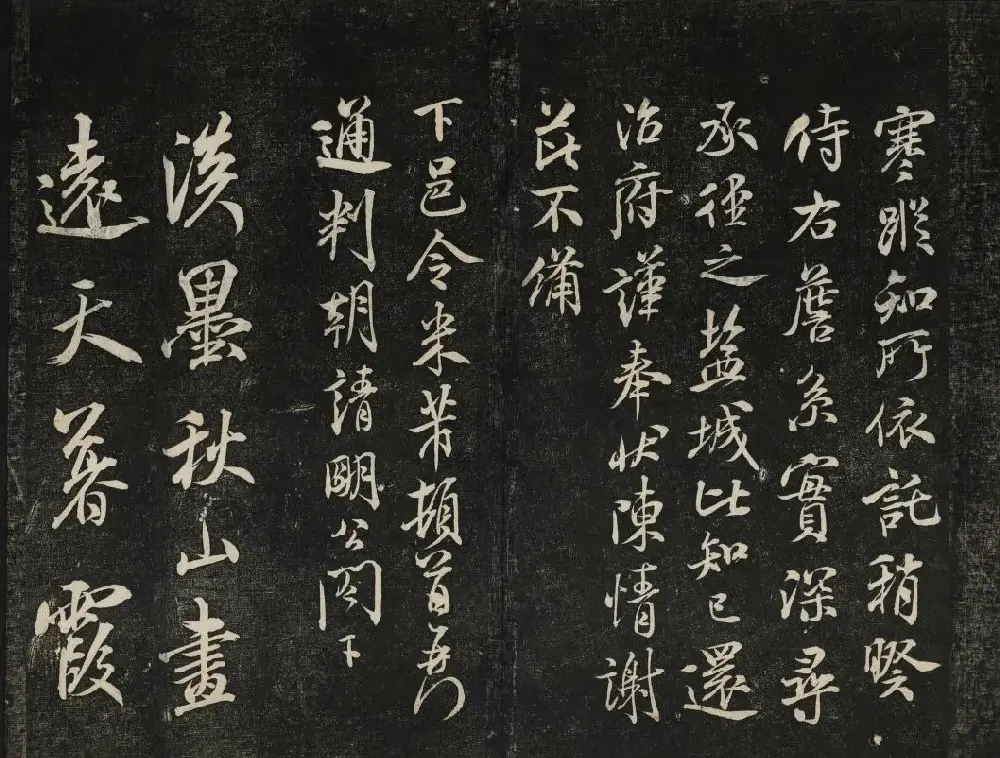 寒蹤知所依託稍暌
侍右詹系實深尋
承徑之鹽城比知已還
治府謹奉狀陳情謝
茲不備
下邑令米芾頓首再
通判朝請明公閤下
淡墨秋山畫
遠天暮霞